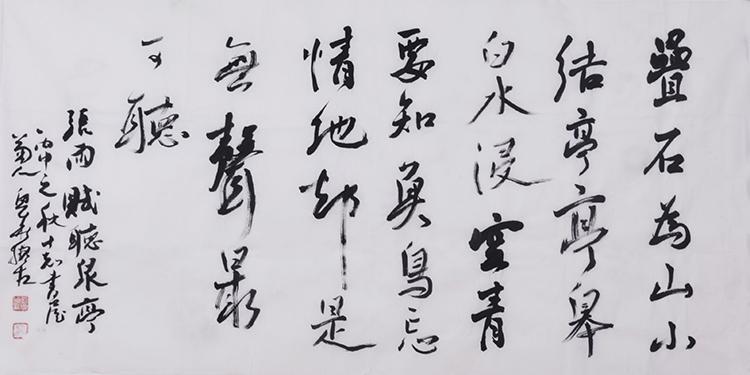 疊石為山小
結亭亭皋
白水浸空青
要知魚鳥忘
情地卻是
無聲最
可聽
張雨賦聽泉亭
丙申之秋書屋